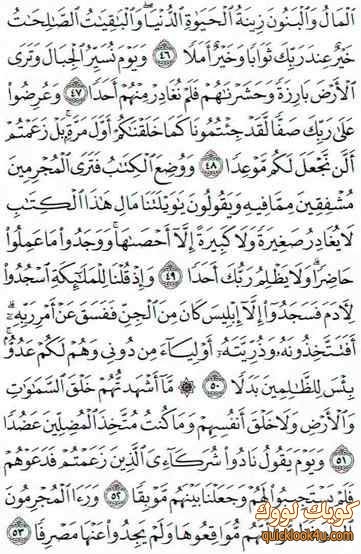 ٱلْمَالُ وَٱلْبَنُونَ زِينَةُ ٱلْحَيَوٰةِ ٱلدُّنْيَا ۖ وَٱلْبَٰقِيَٰتُ ٱلصَّٰلِحَٰتُ
خَيْرٌ عِندَ رَبِّكَ ثَوَابًا وَخَيْرٌ أَمَلًا ٤٦ وَيَوْمَ نُسَيِّرُ ٱلْجِبَالَ وَتَرَى
ٱلْأَرْضَ بَارِزَةً وَحَشَرْنَٰهُمْ فَلَمْ نُغَادِرْ مِنْهُمْ أَحَدًا ٤٧ وَعُرِضُوا۟
عَلَىٰ رَبِّكَ صَفًّا لَّقَدْ جِئْتُمُونَا كَمَا خَلَقْنَٰكُمْ أَوَّلَ مَرَّةٍۭ ۚ بَلْ زَعَمْتُمْ
أَلَّن نَّجْعَلَ لَكُم مَّوْعِدًا ٤٨ وَوُضِعَ ٱلْكِتَٰبُ فَتَرَى ٱلْمُجْرِمِينَ
مُشْفِقِينَ مِمَّا فِيهِ وَيَقُولُونَ يَٰوَيْلَتَنَا مَالِ هَٰذَا ٱلْكِتَٰبِ
لَا يُغَادِرُ صَغِيرَةً وَلَا كَبِيرَةً إِلَّآ أَحْصَىٰهَا ۚ وَوَجَدُوا۟ مَا عَمِلُوا۟
حَاضِرًا ۗ وَلَا يَظْلِمُ رَبُّكَ أَحَدًا ٤٩ وَإِذْ قُلْنَا لِلْمَلَٰٓئِكَةِ ٱسْجُدُوا۟
لِءَادَمَ فَسَجَدُوٓا۟ إِلَّآ إِبْلِيسَ كَانَ مِنَ ٱلْجِنِّ فَفَسَقَ عَنْ أَمْرِ رَبِّهِۦٓ ۗ
أَفَتَتَّخِذُونَهُۥ وَذُرِّيَّتَهُۥٓ أَوْلِيَآءَ مِن دُونِى وَهُمْ لَكُمْ عَدُوٌّۢ ۚ
بِئْسَ لِلظَّٰلِمِينَ بَدَلًا ٥٠ ۞ مَّآ أَشْهَدتُّهُمْ خَلْقَ ٱلسَّمَٰوَٰتِ
وَٱلْأَرْضِ وَلَا خَلْقَ أَنفُسِهِمْ وَمَا كُنتُ مُتَّخِذَ ٱلْمُضِلِّينَ عَضُدًا
٥١ وَيَوْمَ يَقُولُ نَادُوا۟ شُرَكَآءِىَ ٱلَّذِينَ زَعَمْتُمْ فَدَعَوْهُمْ
فَلَمْ يَسْتَجِيبُوا۟ لَهُمْ وَجَعَلْنَا بَيْنَهُم مَّوْبِقًا ٥٢ وَرَءَا ٱلْمُجْرِمُونَ
مُّوَاقِعُوهَا وَلَمْ يَجِدُوا۟ عَنْهَا مَصْرِفًا ٥٣
كويك لووك
www.quicklook4u.com